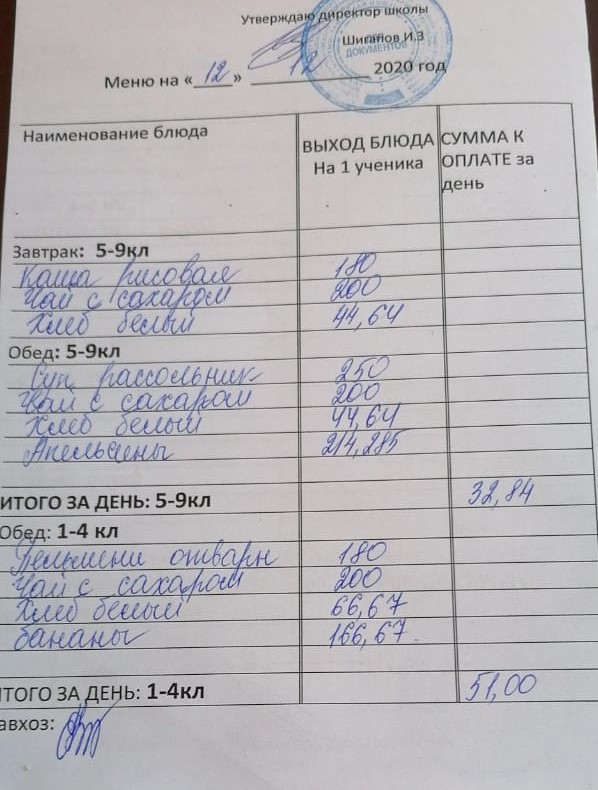 Утверждаю директор школы
Шигапов И.З
ДОКУМЕНТОВ
Меню на «12» 12 2020 год
Наименование блюда ВЫХОД БЛЮДА На 1 ученика СУММА К ОПЛАТЕ за день
Завтрак: 5-9кл
Каша рисовая 180
Чай с сахаром 200
Хлеб белый 44,64
Обед: 5-9кл
Суп рассольник 250
Чай с сахаром 200
Хлеб белый 44,64
Апельсины 214,285
ИТОГО ЗА ДЕНЬ: 5-9кл 32,84
Обед: 1-4 кл
Пельмени отварн 180
Чай с сахаром 200
Хлеб белый 66,67
бананы 166,67
ТОГО ЗА ДЕНЬ: 1-4кл 51,00
авхоз: